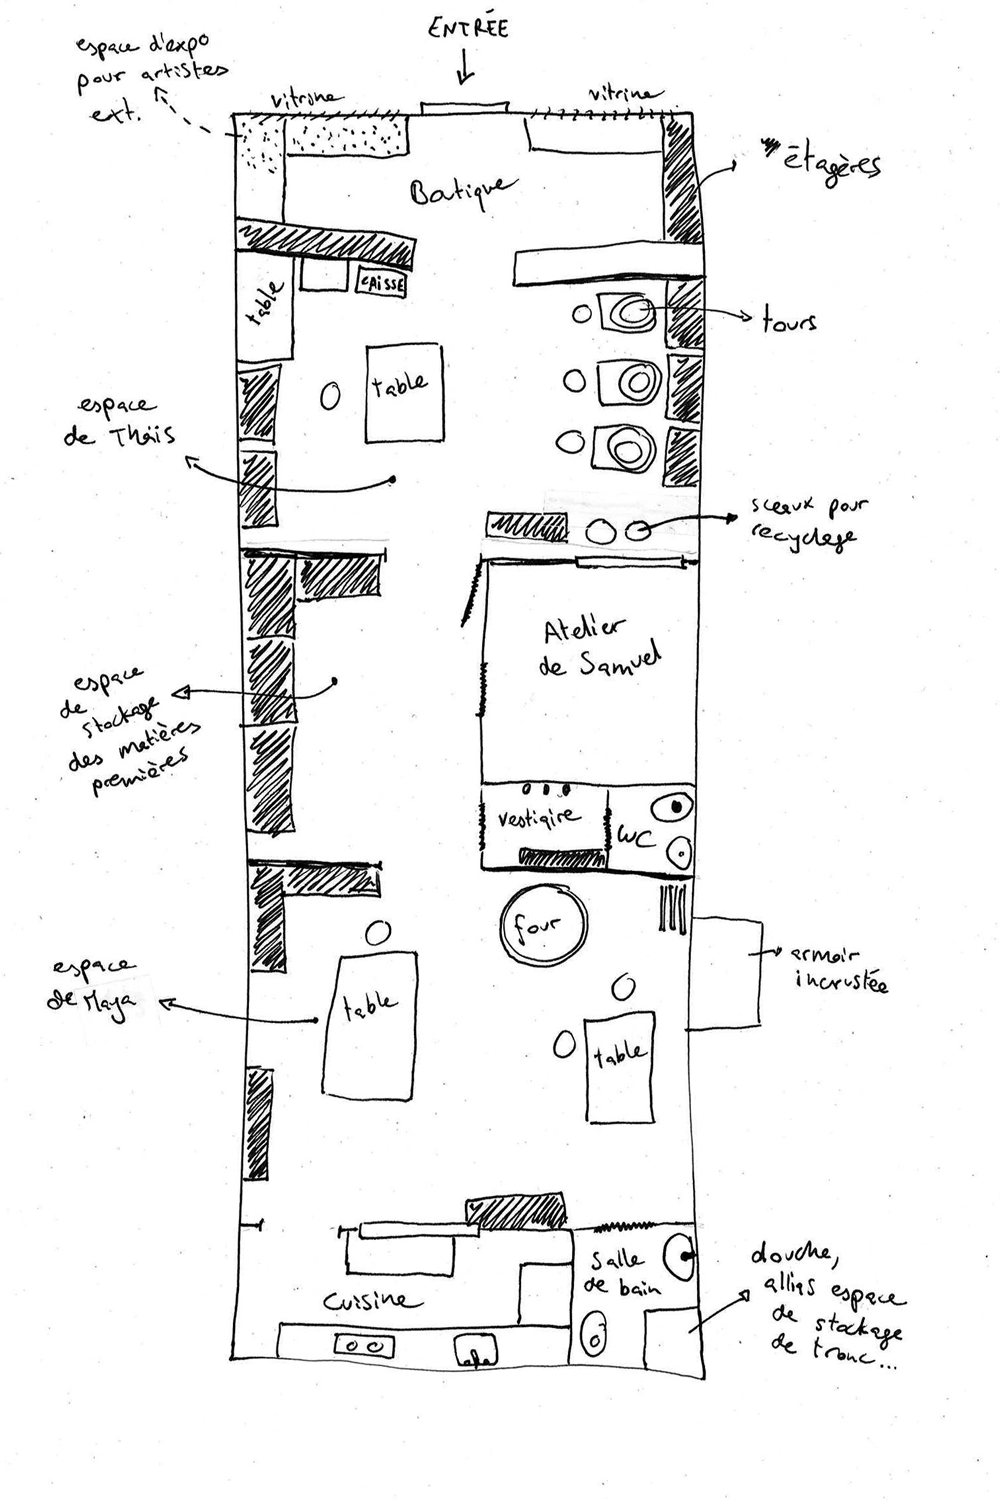 ENTRÉE
espace d'expo
pour artistes
ext.
vitrine
vitrine
Boutique
étagères
table
CAISSE
tours
table
espace
de Thaïs
sceaux pour
recyclage
Atelier
de Samuel
espace
de
stockage
des matières
premières
vestiaire
WC
four
armoir
incrustée
espace
de Maya
table
table
Salle
de bain
Cuisine
douche,
allias espace
de stockage
de tronc...